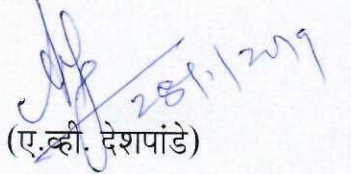 28/1/2019
(ए.व्ही. देशपांडे)